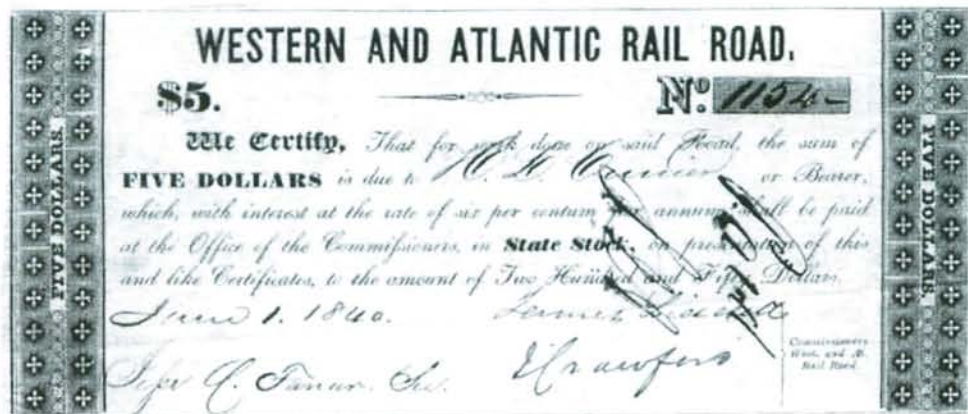 WESTERN AND ATLANTIC RAIL ROAD.
$5. No. 1154
We Certify, That for work done on said Road, the sum of
FIVE DOLLARS is due to or Bearer,
which, with interest at the rate of six per centum per annum, shall be paid
at the Office of the Commissioners, in State Stock, on presentation of this
and like Certificates, to the amount of Two Hundred and Fifty Dollars.
June 1. 1840.
Crawford
Commissioners
West. and At.
Rail Road.
FIVE DOLLARS.
FIVE DOLLARS.